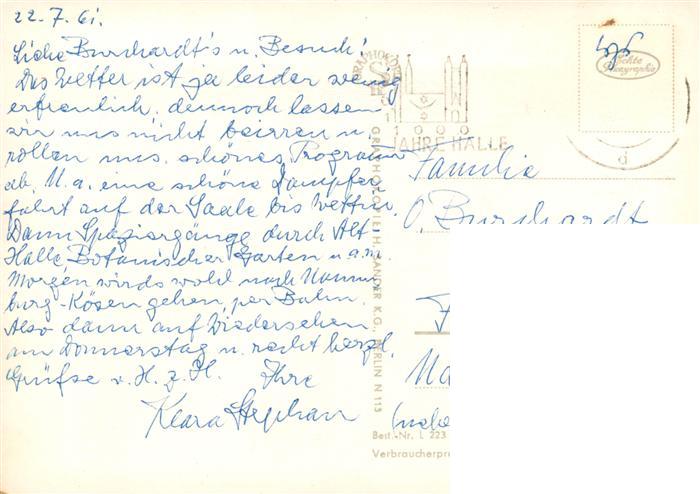 22.7.61.
Liebe Burchardt's u. Besuch!
Das Wetter ist ja leider wenig
erfreulich, dennoch lassen
wir uns nicht beirren u.
rollen uns. schönes Programm
ab. U. a. eine schöne Dampfer
fahrt auf der Saale bis Wettin.
Dann Spaziergänge durch Alt
Halle Botanischer Garten u. a. m.
Morgen wirds wohl nach Naum
burg-Kösen gehen, per Bahn.
Also dann auf Wiedersehen
am Donnerstag u. recht herzl.
Grüße v. H. z. H. Ihre
Klara Stephan
1000
JAHRE HALLE
Echte
Photographie
d
Familie
O. Burchardt
GRAPHOKOPIE H. SANDER K.G., BERLIN N 113
Best.-Nr. L 223
Verbraucherpr